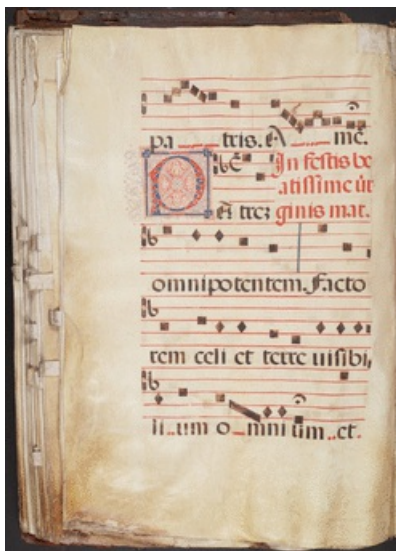 pa tris. A mē.
In festis be
atissime uir
P a trez ginis mar.
omnipotentem. Facto
rem celi et terre uisibi
li um o mni um et